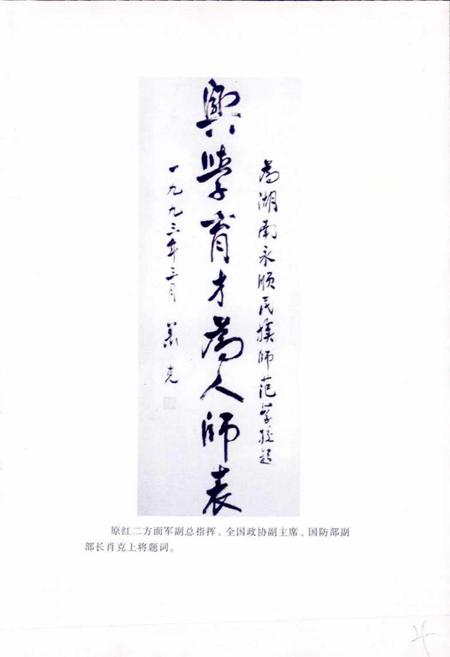 為湖南永顺民族师范学校题
興學育才為人師表
一九九三年三月 萧克
原红二方面军副总指挥、全国政协副主席、国防部副
部长肖克上将题词。